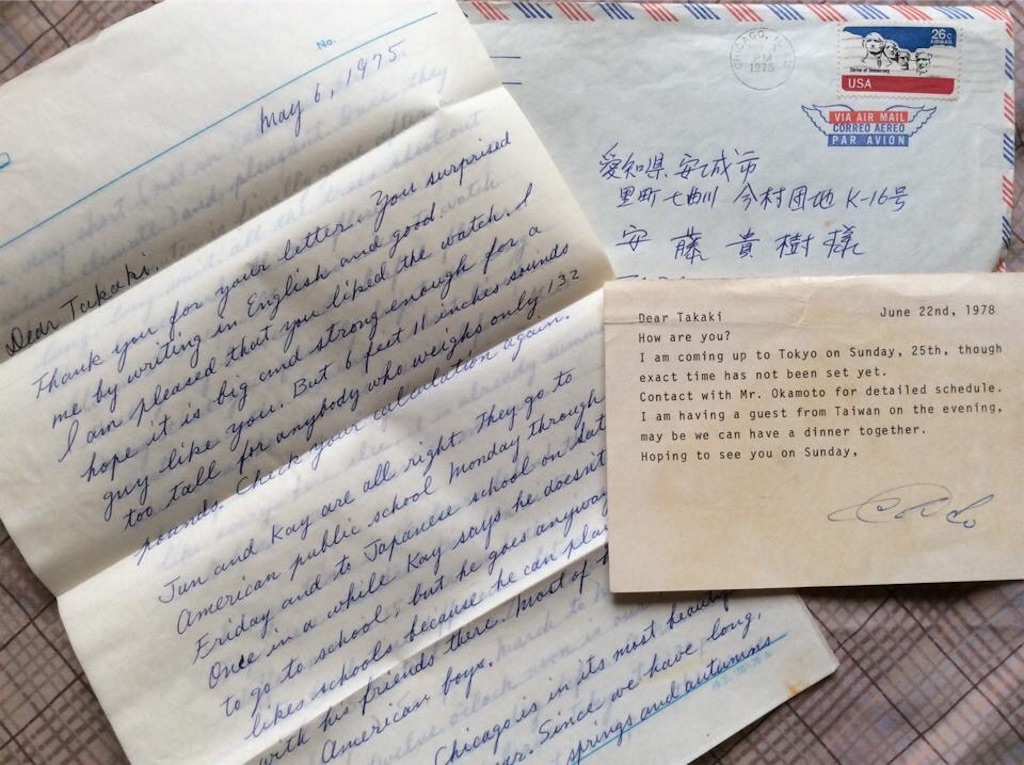 No.
May 6, 1975.
Dear Takaki,
Thank you for your letter. You surprised
me by writing in English and good.
I am pleased that you liked the watch. I
hope it is big and strong enough for a
guy like you. But 6 feet 11 inches sounds
too tall for anybody who weighs only 132
pounds. Check your calculation again.
Jun and Kay are all right. They go to
American public school Monday through
Friday and to Japanese school on Sat
Once in a while Kay says he doesn't
to go to school, but he goes anyway
likes schools because he can pla
with his friends there. Most of
American boys.
Chicago is in its most beautif
ar. Since we have long,
springs and autumns
CHICAGO, IL
1975
Shrine of Democracy
26c
AIRMAIL
USA
VIA AIR MAIL
CORREO AEREO
PAR AVION
愛知県安城市
里町七曲川 今村団地 K-16号
安藤貴樹様
June 22nd, 1978
Dear Takaki
How are you?
I am coming up to Tokyo on Sunday, 25th, though
exact time has not been set yet.
Contact with Mr. Okamoto for detailed schedule.
I am having a guest from Taiwan on the evening,
may be we can have a dinner together.
Hoping to see you on Sunday,